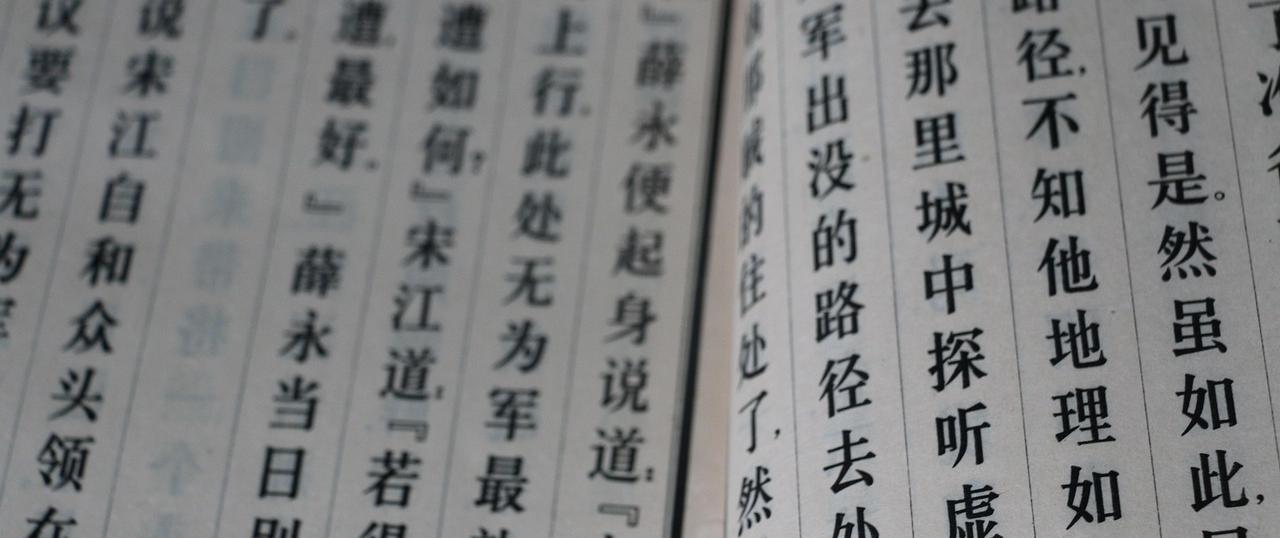 见得是。然虽如此，
径，不知他地理如
去那里城中探听虚
军出没的路径去处
的住处了，然
』薛永便起身说道：『
上行。此处无为军最
遭如何？』宋江道：『若得
遭最好。』薛永当日别
了。
说宋江自和众头领在
议要打无为军